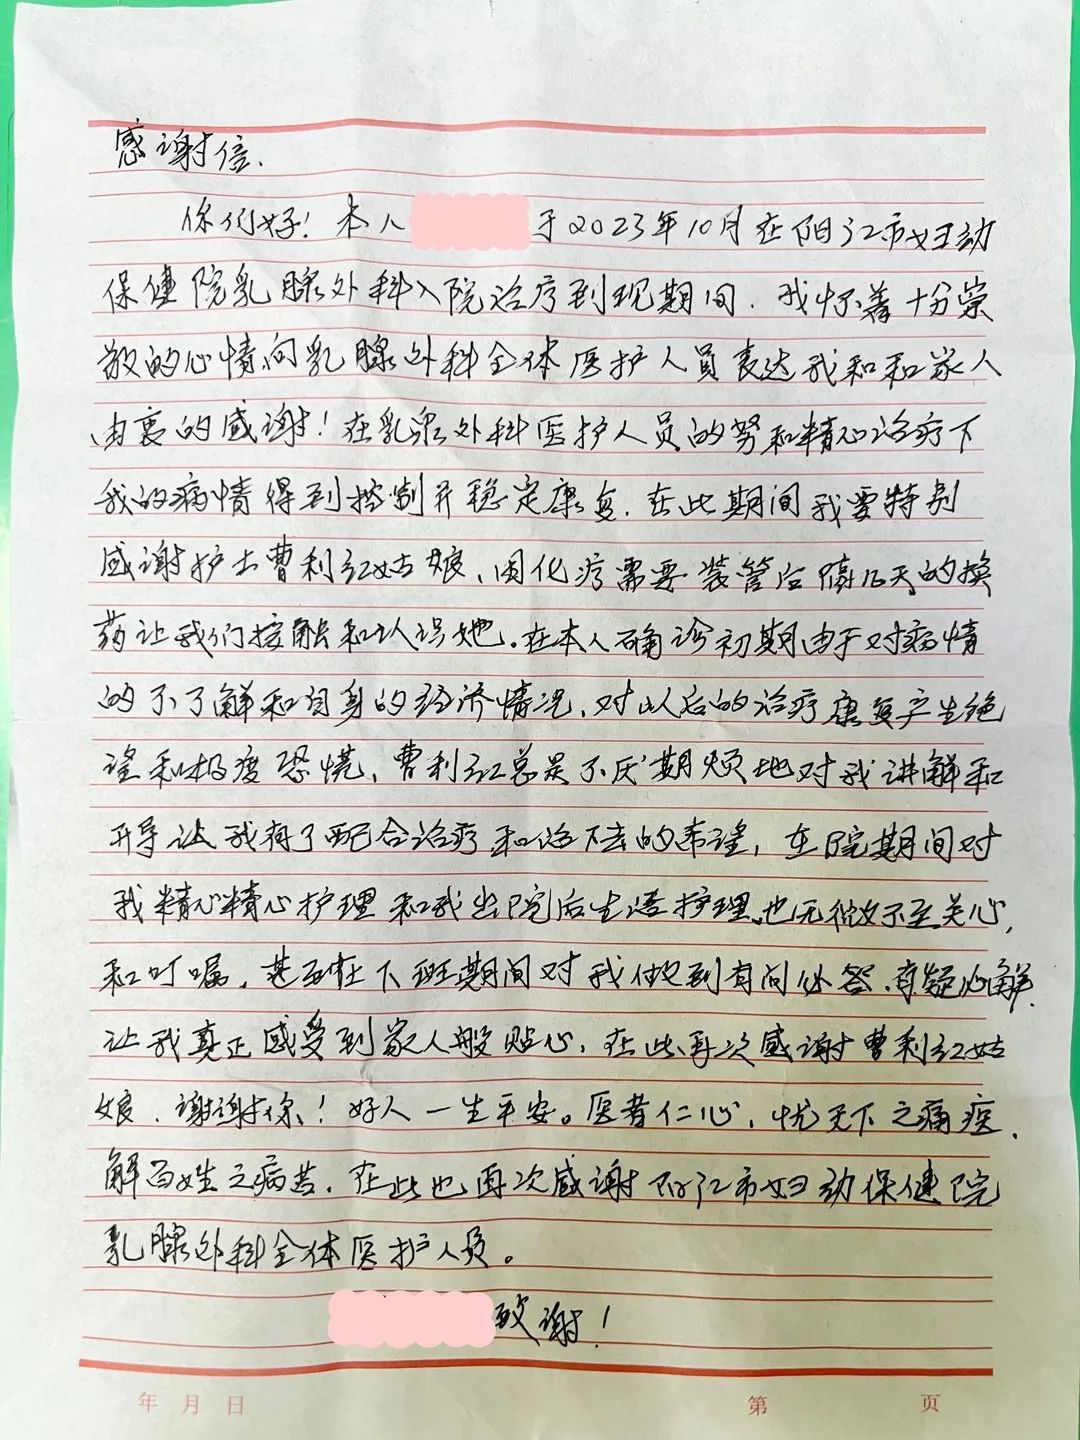 感谢信.
你们好！本人 于2023年10月在阳江市妇动
保健院乳腺外科入院治疗到现期间.我怀着十分崇
敬的心情向乳腺外科全体医护人员表达我和和家人
由衷的感谢！在乳腺外科医护人员的努和精心治疗下
我的病情得到控制并稳定康复.在此期间我要特别
感谢护士曹利红姑娘、因化疗需要装管后隔几天的换
药让我们接触和认识她.在本人确诊初期由于对病情
的不了解和自身的经济情况,对以后的治疗康复产生绝
望和极度恐慌、曹利红总是不厌期烦地对我讲解和
开导让我有了配合治疗和活下去的希望，在院期间对
我精心精心护理和我出院后生活护理也无微不至关心,
和叮嘱.甚至在下班期间对我做到有问必答.有疑必解.
让我真正感受到家人般贴心、在此再次感谢曹利红姑
娘.谢谢你！好人一生平安。医者仁心，忧天下之痛疾.
解百姓之病苦.在此也再次感谢阳江市妇动保健院
乳腺外科全体医护人员。
致谢！
年 月 日 第 页